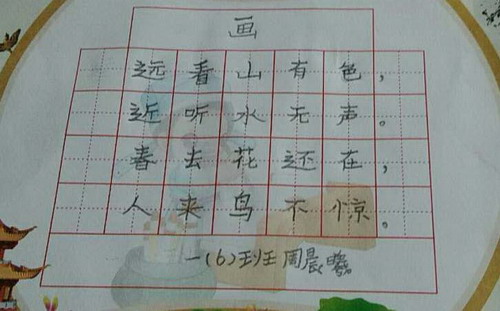 画
远看山有色,
近听水无声。
春去花还在,
人来鸟不惊。
一(6)班周晨曦